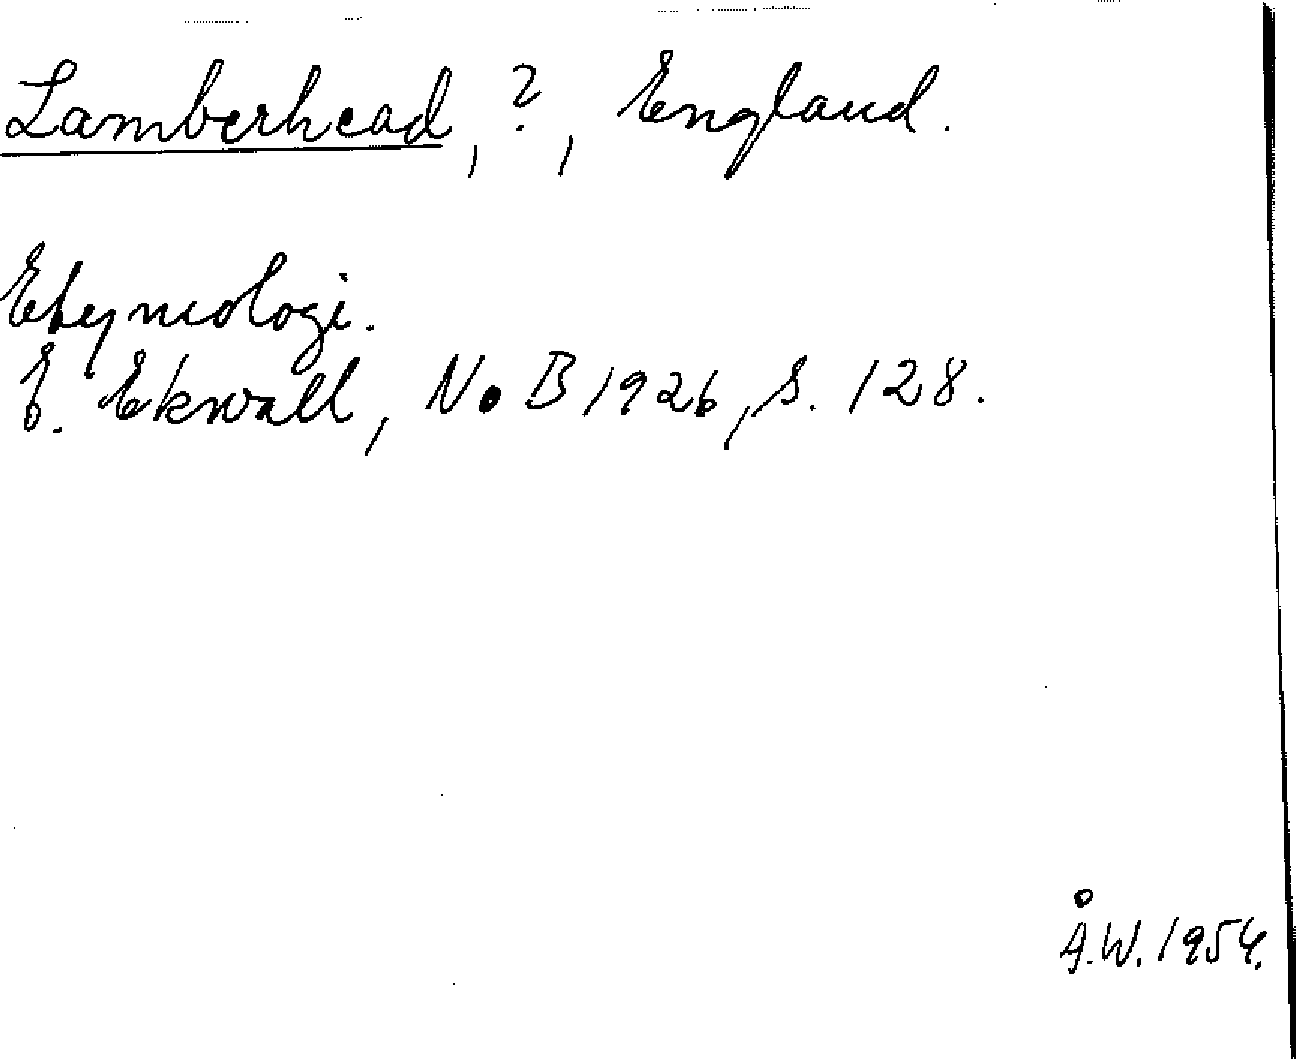 Lamberhead, ?, England.
Etymologi.
E. Ekwall, NoB 1926, s. 128.
Å.W. 1954.